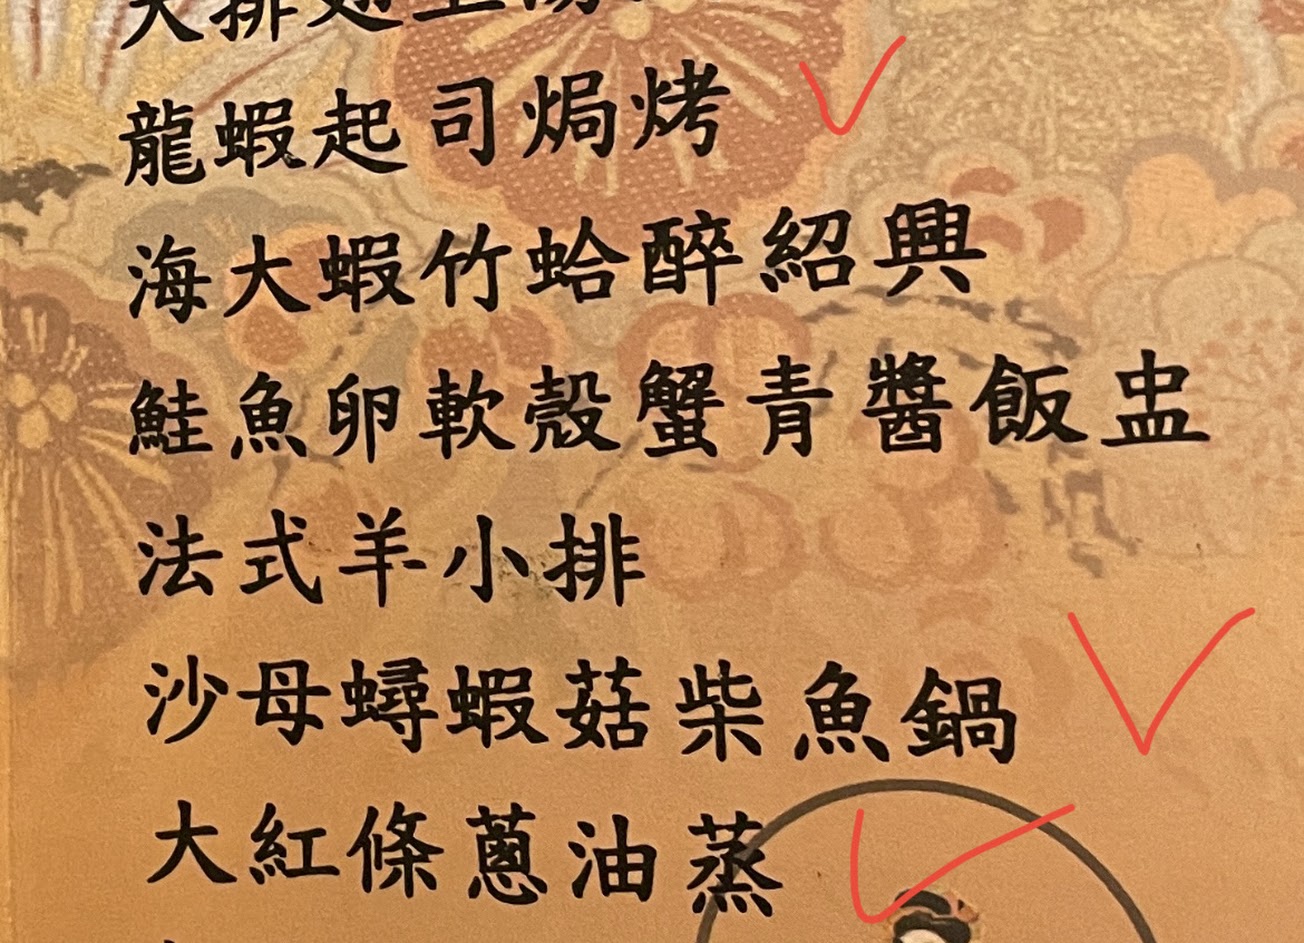 大排翅
龍蝦起司焗烤
海大蝦竹蛤醉紹興
鮭魚卵軟殼蟹青醬飯盅
法式羊小排
沙母蟳蝦菇柴魚鍋
大紅條蔥油蒸